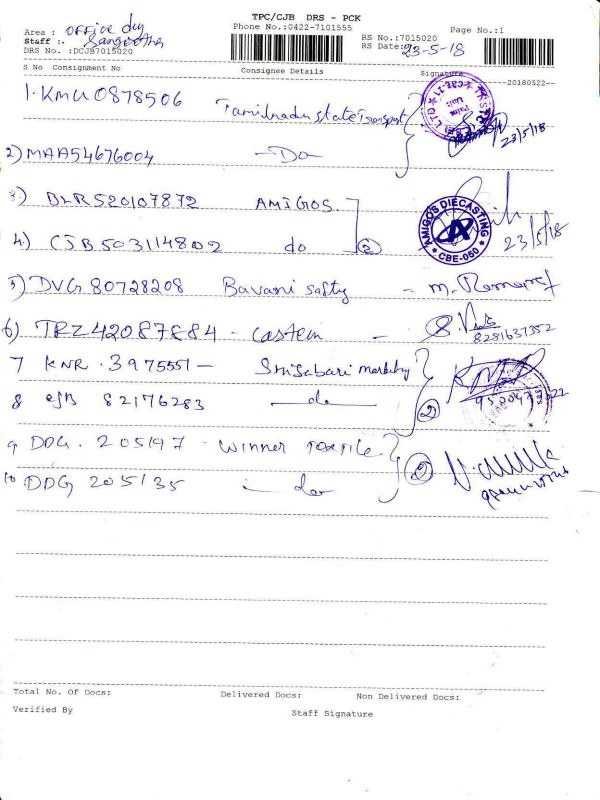 TPC/CJB DRS - PCK
Phone No.:0422-7101555
Page No.:1
Area : office dly
Staff :. Sangeetha
DRS No. :DCJB7015020
RS No.:7015020
RS Date: 23-5-18
S No Consignment No Consignee Details Signature
20180522
1. KMU 0878506 Tamilnadu state Transport
23/5/18
2) MAA54676004 - Do
3) DLR520107872 AMIGOS
AMIGOS DIECASTING
CBE-050
23/5/18
4) CJB503114802 do 2
5) DVG 80728208 Bavani safty -
6) TRZ42087884 -
8281637352
7 KNR. 3975551 - Sri Sabari marketing
8 CJB 82176283 - do - 2
9 DDG. 205197 - Winner Textile
10 DDG 205135 - do 2
Total No. Of Docs: Delivered Docs: Non Delivered Docs:
Verified By Staff Signature